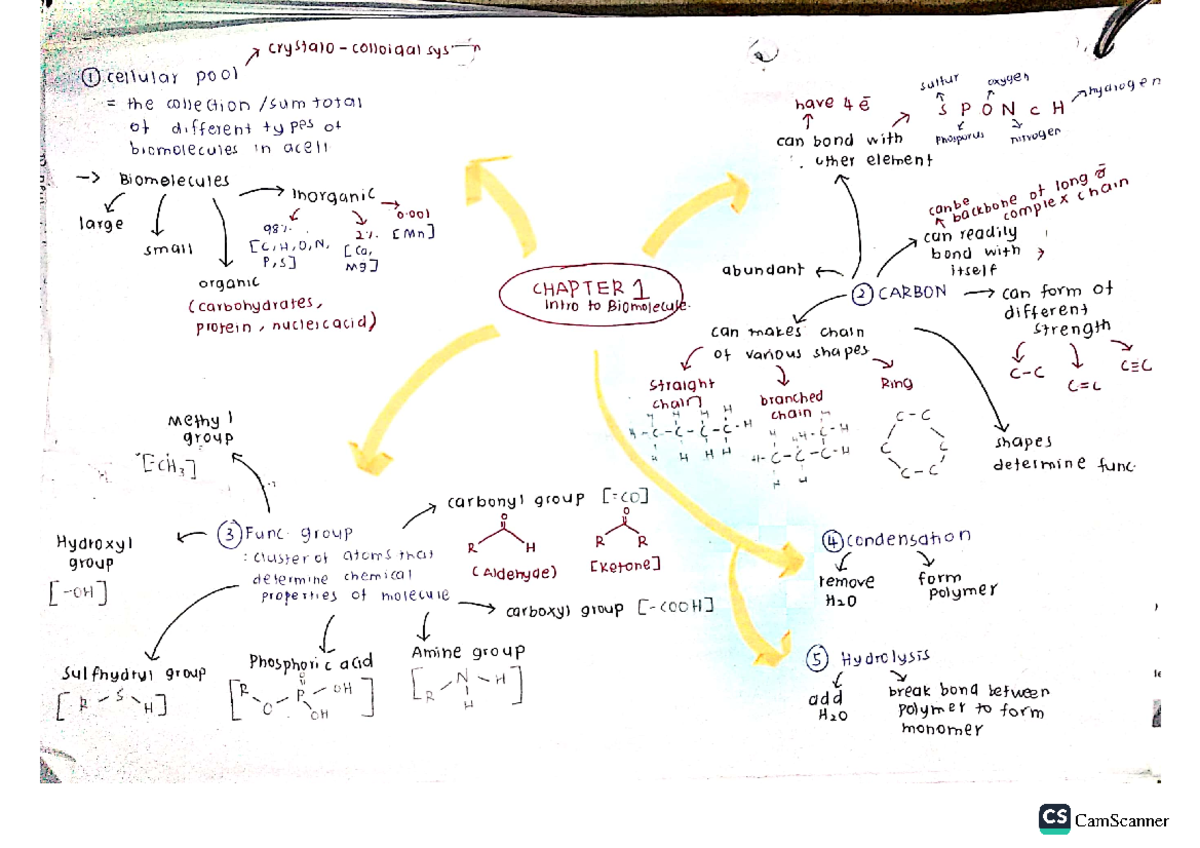 crystalo - colloidal sys
① cellular pool
= the collection / sum total
of different types of
biomolecules in a cell
-> Biomolecules
large
small
organic
(carbohydrates,
protein, nucleic acid)
Inorganic
98%
[C, H, O, N,
P, S]
2%
[Ca,
Mg]
0.001
[Mn]
CHAPTER 1
Intro to Biomolecule.
② CARBON
have 4 ē
can bond with
other element
sulfur
oxygen
hydrogen
S P O N C H
Phospurus
nitrogen
can be
backbone of long &
complex chain
can readily
bond with
itself
abundant
can form of
different
strength
C-C
C=C
C≡C
can makes chain
of various shapes
straight
chain
branched
chain
Ring
H H H H
H-C-C-C-C-H
H H H H
C-C
C C
C-C
shapes
determine func.
③ Func. group
: cluster of atoms that
determine chemical
properties of molecule
Methyl
group
[-CH3]
Hydroxyl
group
[-OH]
Sulfhydryl group
[R-S-H]
Phosphoric acid
O
R-O-P-OH
OH
Amine group
[R-N-H]
H
carbonyl group [=CO]
O
R H
(Aldehyde)
O
R R
[Ketone]
carboxyl group [-COOH]
④ condensation
remove
H2O
form
polymer
⑤ Hydrolysis
add
H2O
break bond between
polymer to form
monomer
CS CamScanner